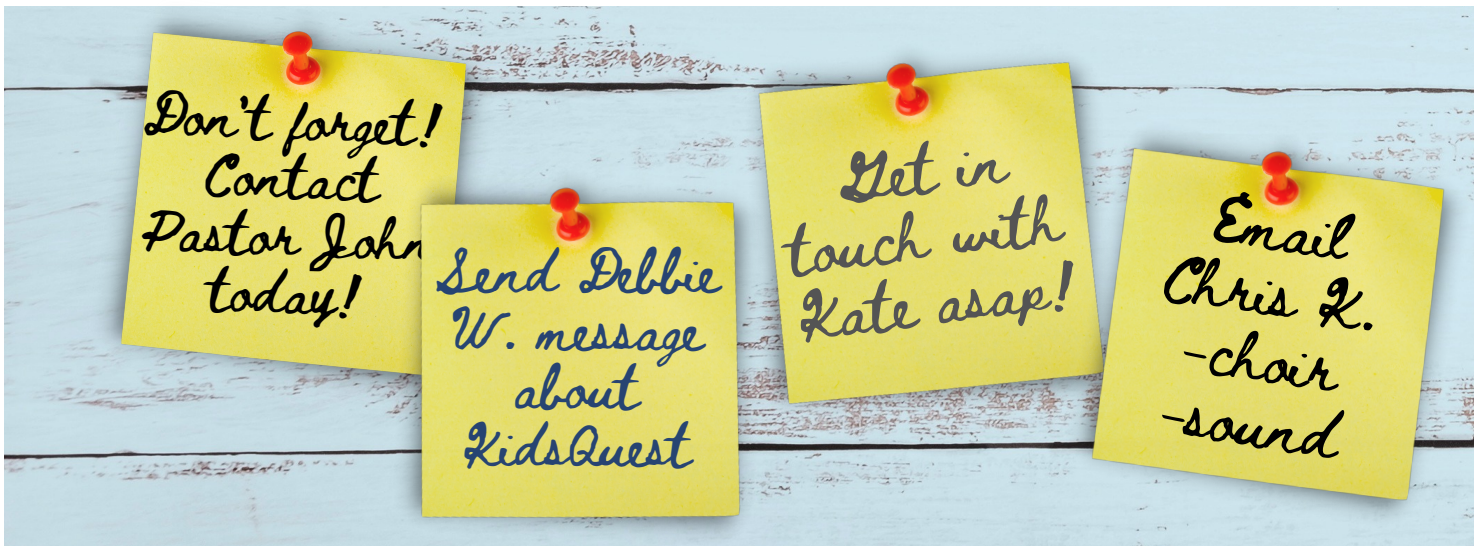 Don't forget!
Contact
Pastor John
today!
Send Debbie
W. message
about
KidsQuest
Get in
touch with
Kate asap!
Email
Chris K.
-choir
-sound